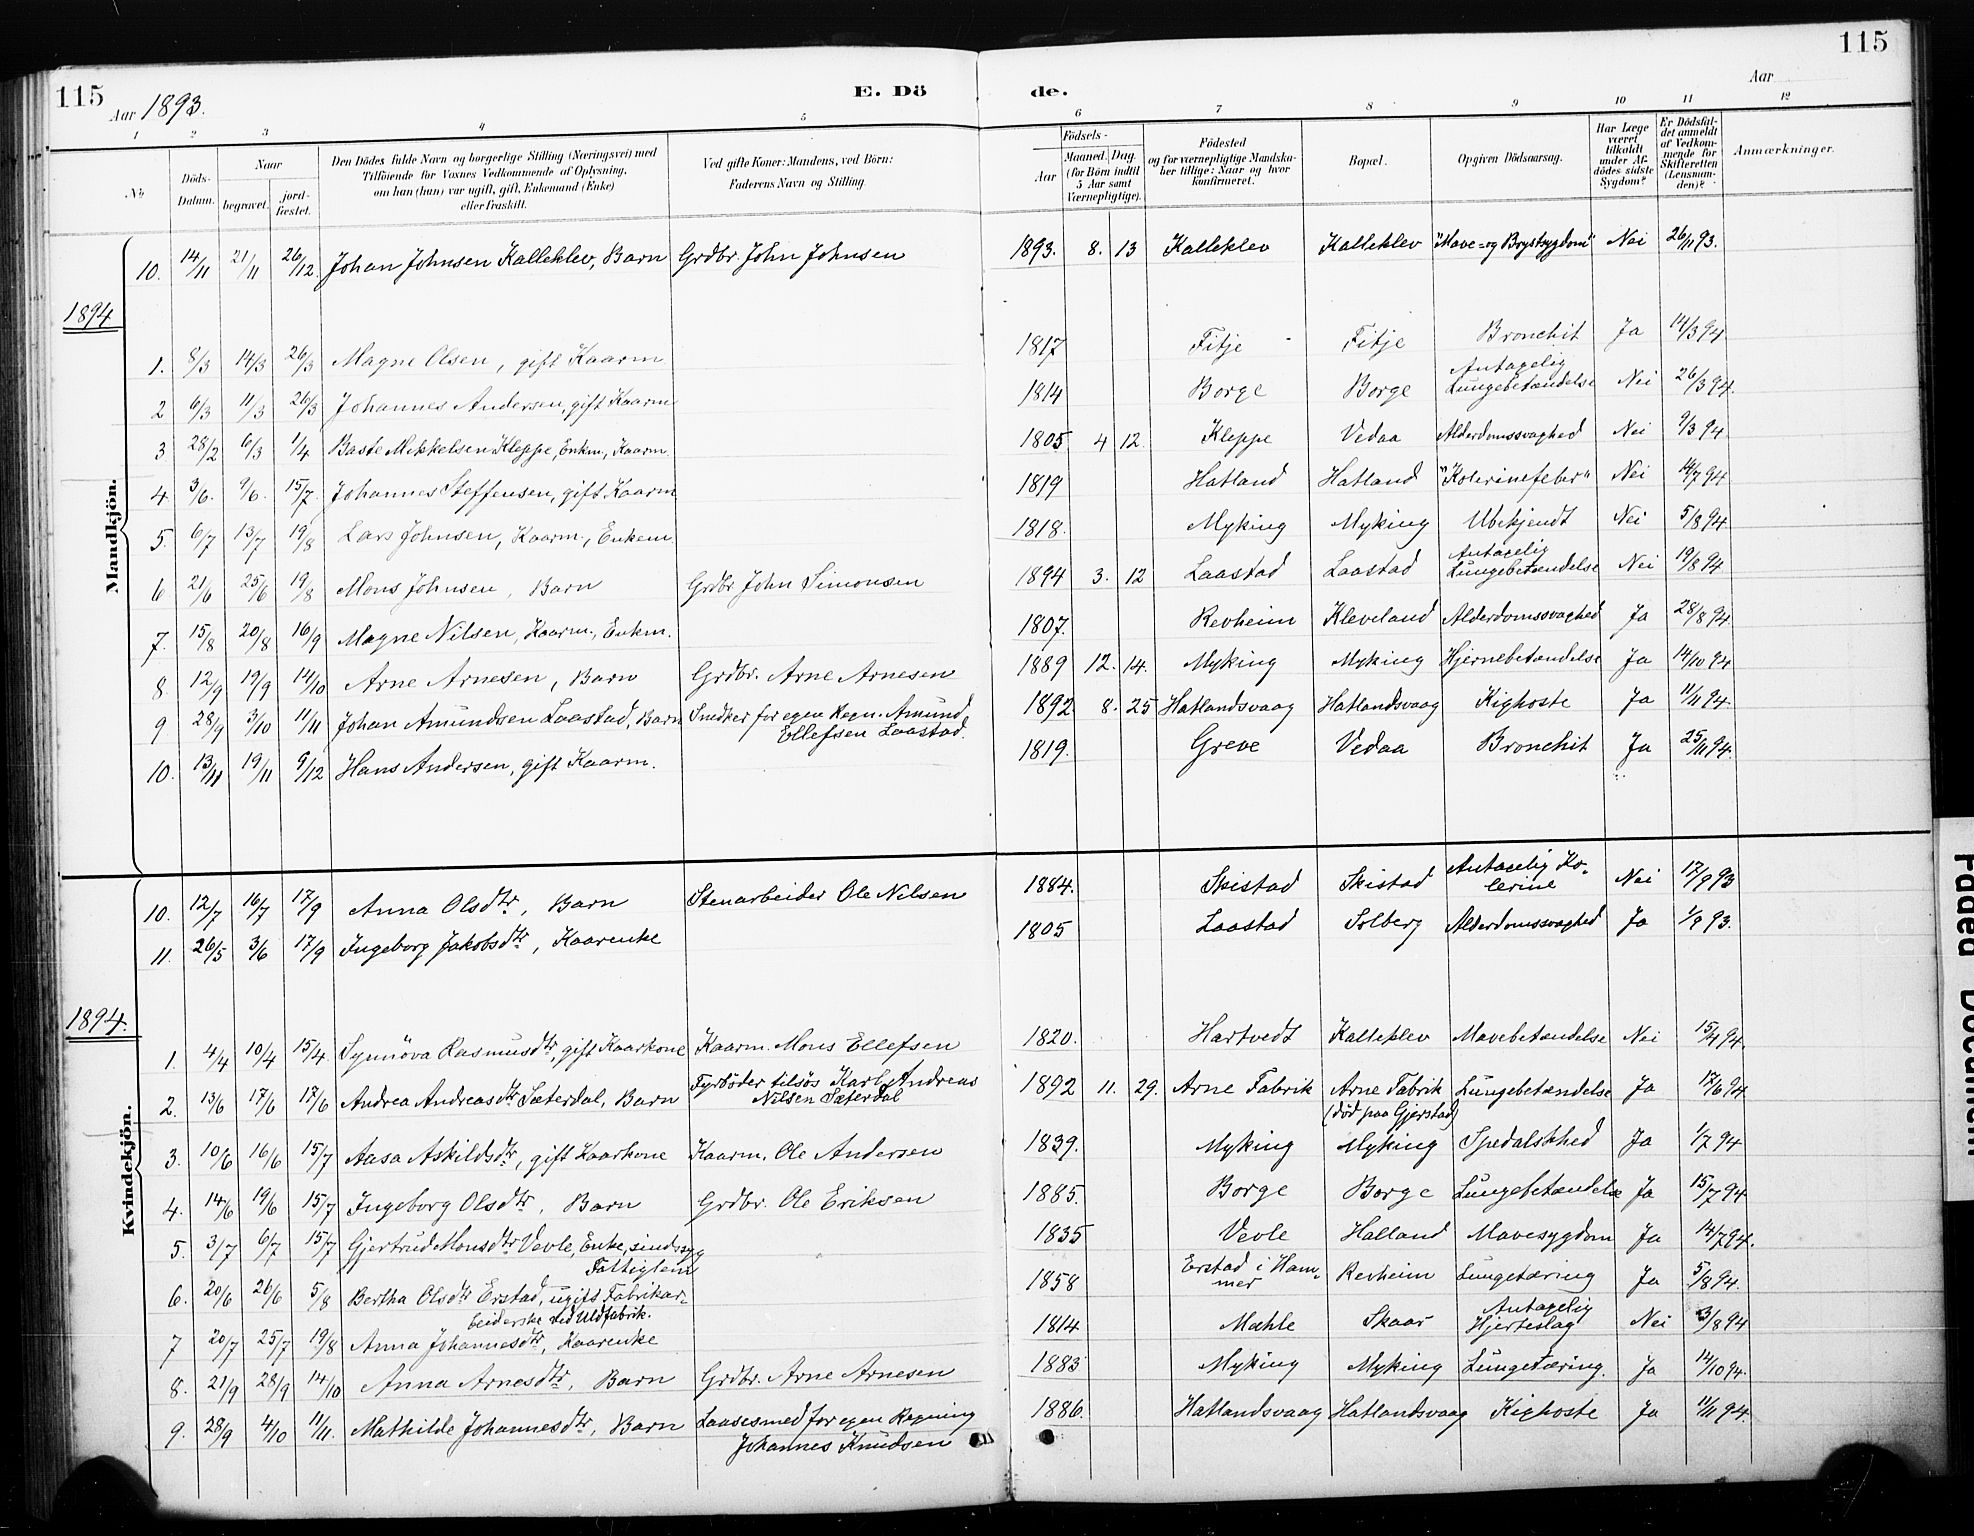 115
Aar 1893.
E. Dö
de.
Aar
115
1 2 3 4 5 6 7 8 9 10 11 12
No
Döds-Datum.
Naar
begravet.
jord-fæstet.
Den Dödes fulde Navn og borgerlige Stilling (Næringsvei) med
Tilföiende for Voxnes Vedkommende af Oplysning,
om han (hun) var ugift, gift, Enkemand (Enke)
eller fraskilt.
Ved gifte Koner: Mandens, ved Börn:
Faderens Navn og Stilling.
Födsels-
Aar
Maaned. Dag.
(for Börn indtil
5 Aar samt
Værnepligtige).
Födested
og for værnepligtige Mandska-
ber tillige: Naar og hvor
konfirmeret.
Bopæl.
Opgiven Dödsaarsag.
Har Læge
været
tilkaldt
under Af-
dödes sidste
Sygdom?
Er Dödsfal-
det anmeldt
af Vedkom-
mende for
Skifteretten
(Lensman-
den)?
Anmærkninger.
Mandkjön.
10. 14/11 21/11 26/12. Johan Johnsen Kalleklev, Barn Grdbr. John Johnsen 1893. 8. 13 Kalleklev Kalleklev "Mave- og Brystsygdom" Nei 26/11 93.
1894
1. 8/3 14/3 26/3 Magne Olsen, gift Kaarm. 1817 Fitje Fitje Bronchit Ja 14/3 94.
2 6/3 11/3 26/3 Johannes Andersen, gift Kaarm 1814 Borge Borge Antagelig Lungebetændelse Nei 26/3 94.
3 28/2 6/3 1/4 Baste Mikkelsen Kleppe, Enkm., Kaarm. 1805 4 12. Kleppe Vedaa Alderdomssvaghed Nei 9/3 94.
4. 3/6. 9/6. 15/7. Johannes Steffensen, gift Kaarm 1819 Hatland Hatland "Kolerinefeber" Nei 14/7 94
5. 6/7 13/7 19/8 Lars Johnsen, Kaarm., Enkem. 1818. Myking Myking Ubekjendt Nei 5/8 94
6 21/6 25/6 19/8 Mons Johnsen, Barn Grdbr. John Simonsen 1894 3. 12 Laastad Laastad Antagelig Lungebetændelse Nei 19/8 94
7. 15/8 20/8 16/9 Magne Nilsen, Kaarm., Enkm. 1807. Revheim Kleveland Alderdomssvaghed Ja 28/8 94.
8 12/9 19/9 14/10 Arne Arnesen, Barn Grdbr. Arne Arnesen 1889 12. 14. Myking Myking Hjernebetændelse Ja 14/10 94
9 28/9 3/10 11/11 Johan Amundsen Laastad, Barn Snedker for egen Regn. Amund
Ellefsen Laastad. 1892 8. 25 Hatlandsvaag Hatlandsvaag Kighoste Ja 11/11 94.
10. 13/11 19/11 9/12 Hans Andersen, gift Kaarm. 1819. Greve Vedaa Bronchit Ja 25/11 94.
Kvindekjön.
10. 12/7 16/7 17/9 Anna Olsdtr, Barn Stenarbeider Ole Nilsen 1884. Skistad Skistad Antagelig Ko-
lerine Nei 17/9 93
11. 26/5 3/6 17/9 Ingeborg Jakobsdtr, Kaarenke 1805 Laastad Solberg Alderdomssvaghed Ja 1/9 93.
1894.
1. 4/4 10/4 15/4. Synnöva Rasmusdtr, gift Kaarkone Kaarm. Mons Ellefsen 1820. Hartvedt Kalleklev Mavebetændelse Nei 15/4 94.
2. 13/6 17/6 17/6 Andrea Andreasdtr Sæterdal, Barn Fyrböder tilsös Karl Andreas
Nilsen Sæterdal 1892 11. 29. Arne Fabrik Arne Fabrik
(död paa Gjerstad) Lungebetændelse Ja 17/6 94.
3. 10/6 16/6 15/7 Aasa Askildsdtr, gift Kaarkone Kaarm. Ole Andersen 1839. Myking Myking Spedalskhed Ja 1/7 94
4. 14/6 19/6 15/7 Ingeborg Olsdtr, Barn Grdbr. Ole Eriksen 1885. Borge Borge Lungebetændelse Ja 15/7 94
5. 3/7 6/7 15/7 Gjertrud Monsdtr Vevle, Enke, sindssyg
Fattiglem 1835 Vevle Halland Mavesygdom Ja 14/7 94.
6. 20/6 26/6 5/8 Bertha Olsdtr Erstad, ugift Fabrikar-
beiderske ved Uldfabrik. 1858 Erstad i Ham-
mer Revheim Lungetæring Ja 5/8 94.
7 20/7 25/7 19/8 Anna Johannesdtr, Kaarenke 1814 Mæhle Skaar Antagelig
Hjerteslag Nei 3/8 94
8. 21/9 28/9 14/10 Anna Arnesdtr, Barn Grdbr. Arne Arnesen 1883 Myking Myking Lungetæring. Ja 14/10 94.
9. 28/9 4/10 11/11. Mathilde Johannesdtr, Barn Laasesmed for egen Regning
Johannes Knudsen 1886. Hatlandsvaag Hatlandsvaag Kighoste Ja 11/11 94.